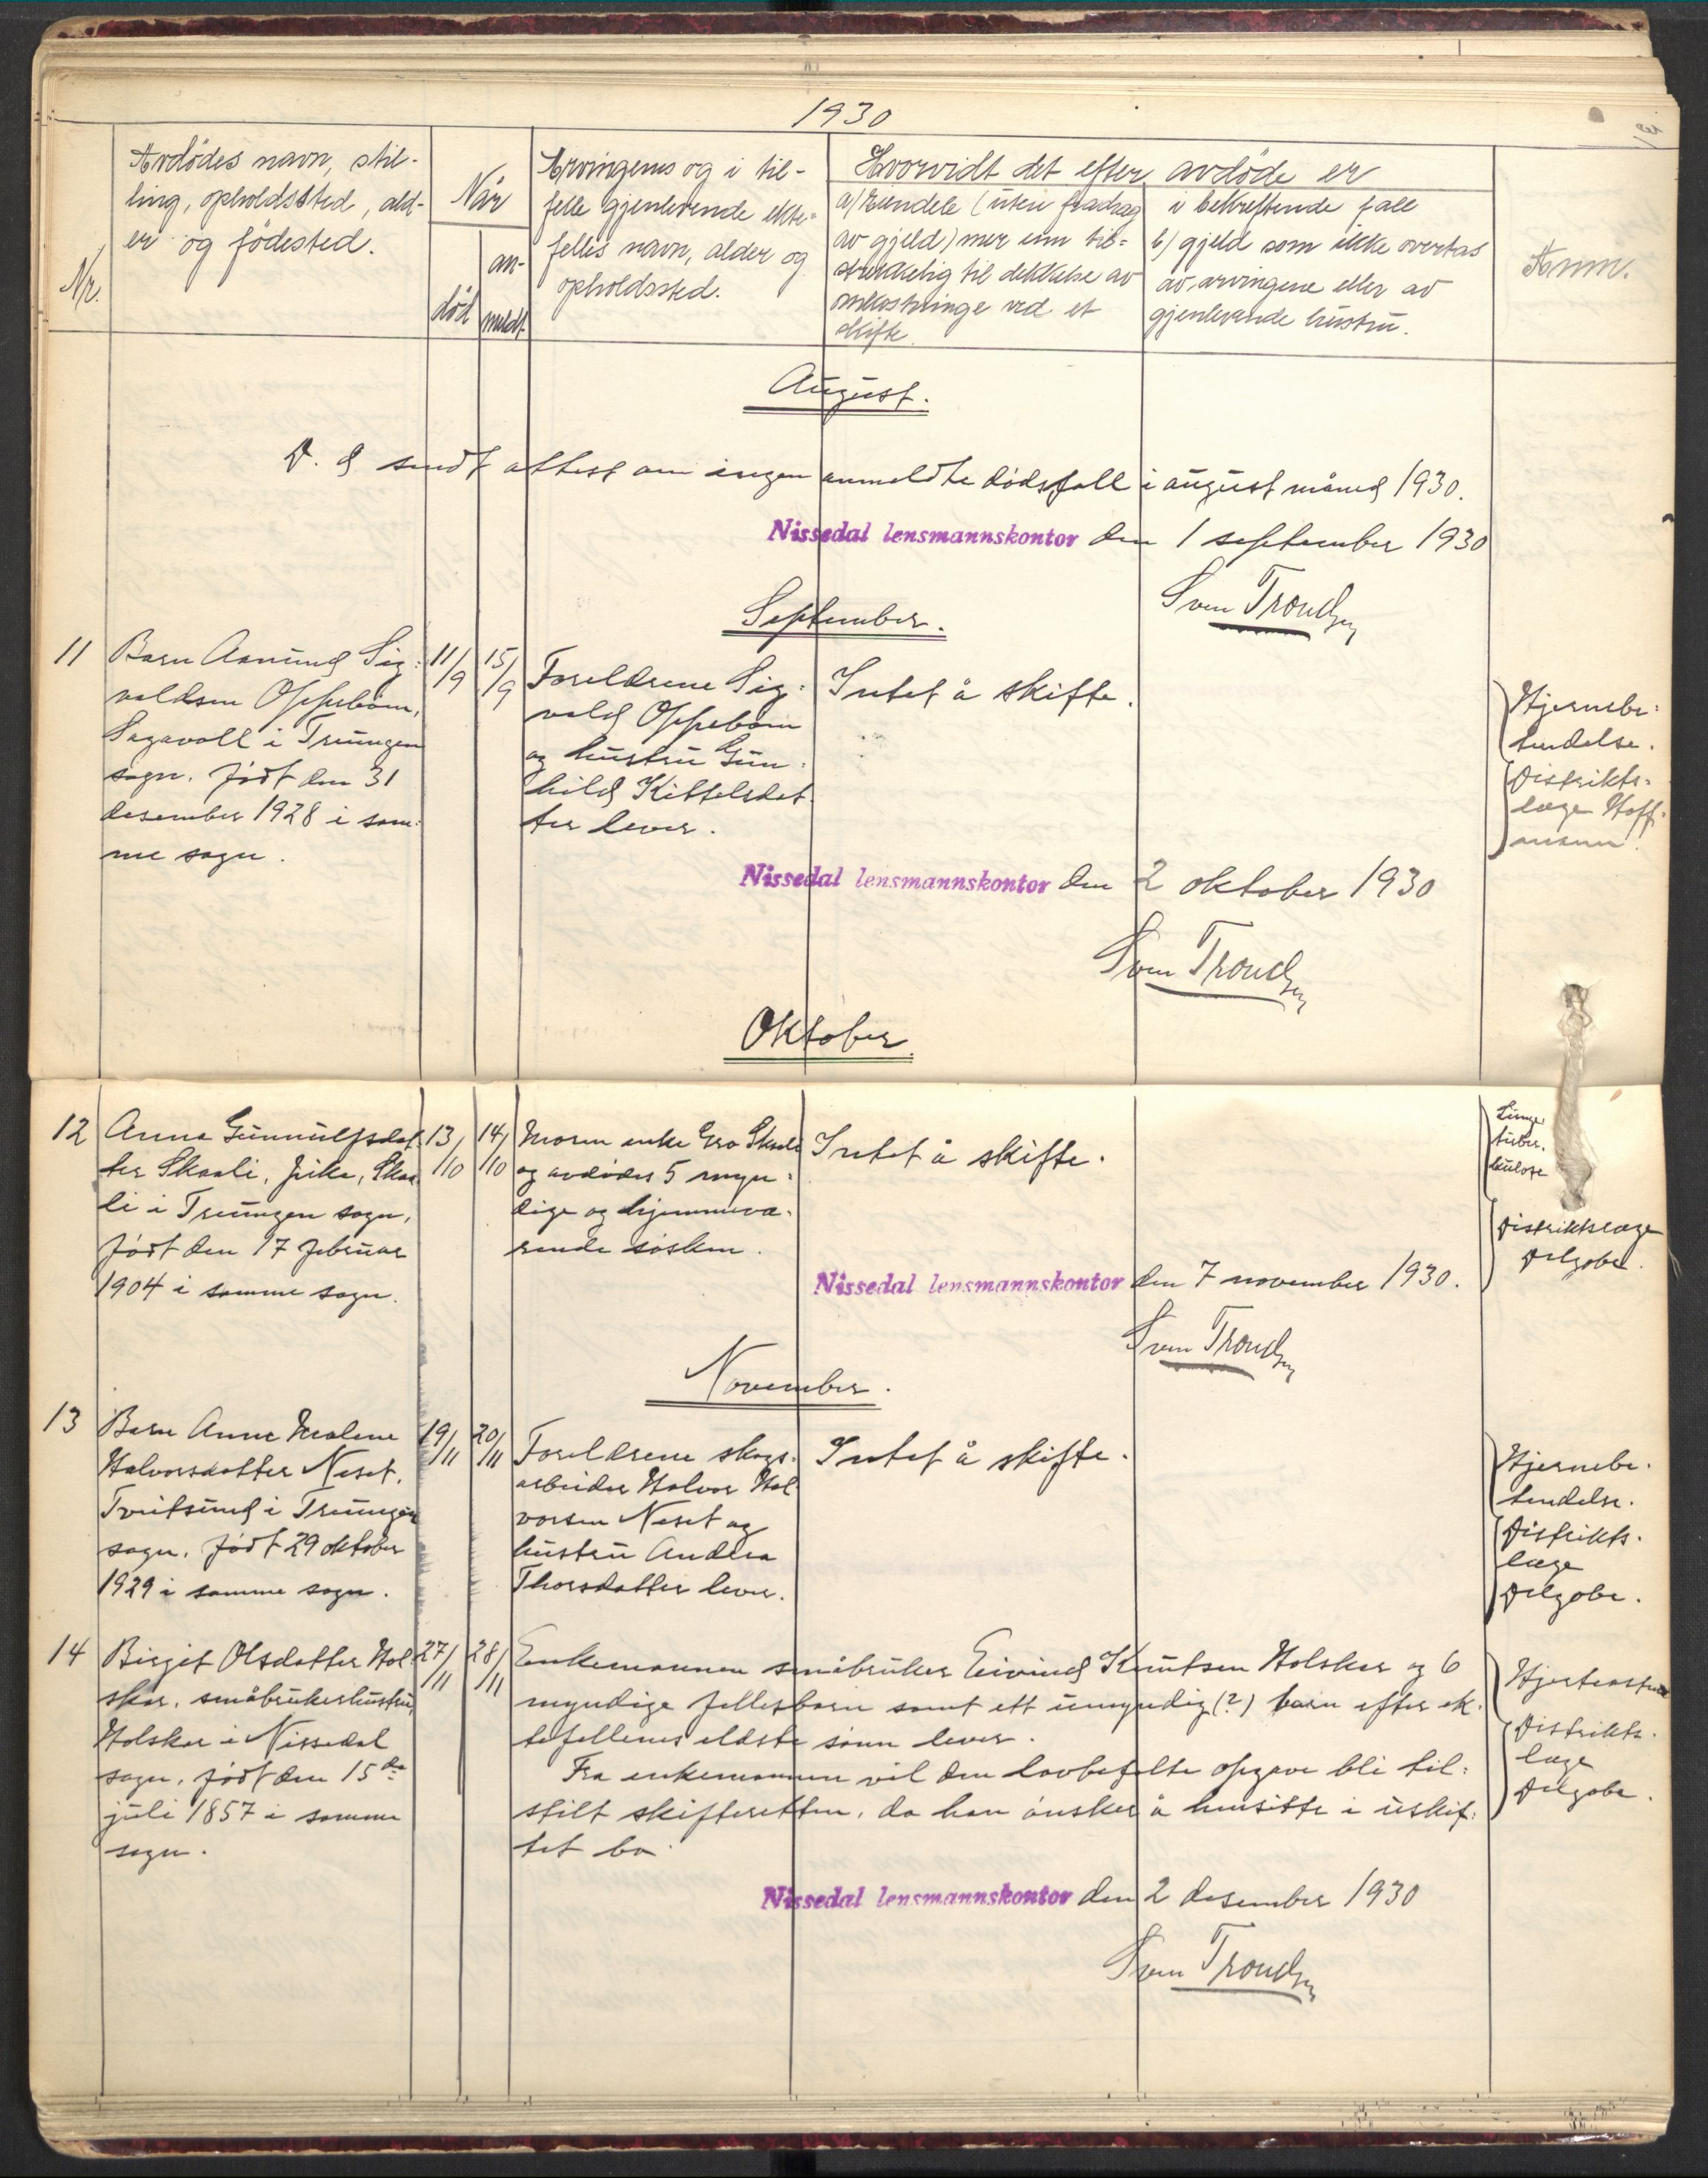 1930
Nr.
Avdödes navn, stil-
ling, opholdssted, ald-
er og födested.
Når
död
an-
meldt
Arvingenes og i til-
felle gjenlevende ekte-
felles navn, alder og
opholdssted.
Hvorvidt det efter avdöde er
a/ Eiendele (uten fradrag
av gjeld) mer enn til-
strekkelig til dekkelse av
omkostninge ved et
skifte.
i bekreftende fall
b/ gjeld som ikke overtas
av arvingene eller av
gjenlevende hustru.
Anm.
August.
D. d sendt attest om ingen anmeldte dödsfall i august måned 1930.
Nissedal lensmannskontor den 1 september 1930
Sven Trondsen
September.
11
Barn Aanund Sig-
valdsen Oppebøen,
Sagavoll i Treungen
sogn. Født den 31
desember 1928 i sam-
me sogn.
11/9
15/9
Foreldrene Sig-
vald Oppebøen
og hustru Gun-
hild Kittelsdat-
ter lever.
Intet å skifte.
Hjernebe-
tendelse.
Distrikts-
læge Hoff-
mann.
Nissedal lensmannskontor den 2 oktober 1930
Sven Trondsen
Oktober.
12
Anne Gunnulfsdat-
ter Skaali, pike, Skaa-
li i Treungen sogn,
født den 17 februar
1904 i samme sogn.
13/10
14/10
Moren enke Gro Skaali
og avdødes 5 myn-
dige og hjemmevæ-
rende søsken.
Intet å skifte.
Lunge
tuber-
kulose
Distriktslæge
Delgobe.
Nissedal lensmannskontor den 7 november 1930.
Sven Trondsen
November.
13
Barn Anne Malene
Halvorsdatter Neset,
Tveitsund i Treungen
sogn. Født 29 oktober
1929 i samme sogn.
19/11
20/11
Foreldrene skogs-
arbeider Halvor Hal-
vorsen Neset og
hustru Andrea
Thorsdatter lever.
Intet å skifte.
Hjernebe-
tendelse.
Distrikts-
læge
Delgobe.
14
Birgit Olsdatter Hol-
skar, småbrukerhustru,
Holskar i Nissedal
sogn, født den 15de
juli 1857 i samme
sogn.
27/11
28/11
Enkemannen småbruker Eivind Knutsen Holskar og 6
myndige fellesbarn samt ett umyndig (?) barn efter ek-
tefellenes eldste sønn lever.
Fra enkemannen vil den lovbefalte opgave bli til-
stilt skifteretten, da han ønsker å hensitte i uskif-
tet bo.
Distrikts-
læge
Delgobe.
Nissedal lensmannskontor den 2 desember 1930
Sven Trondsen